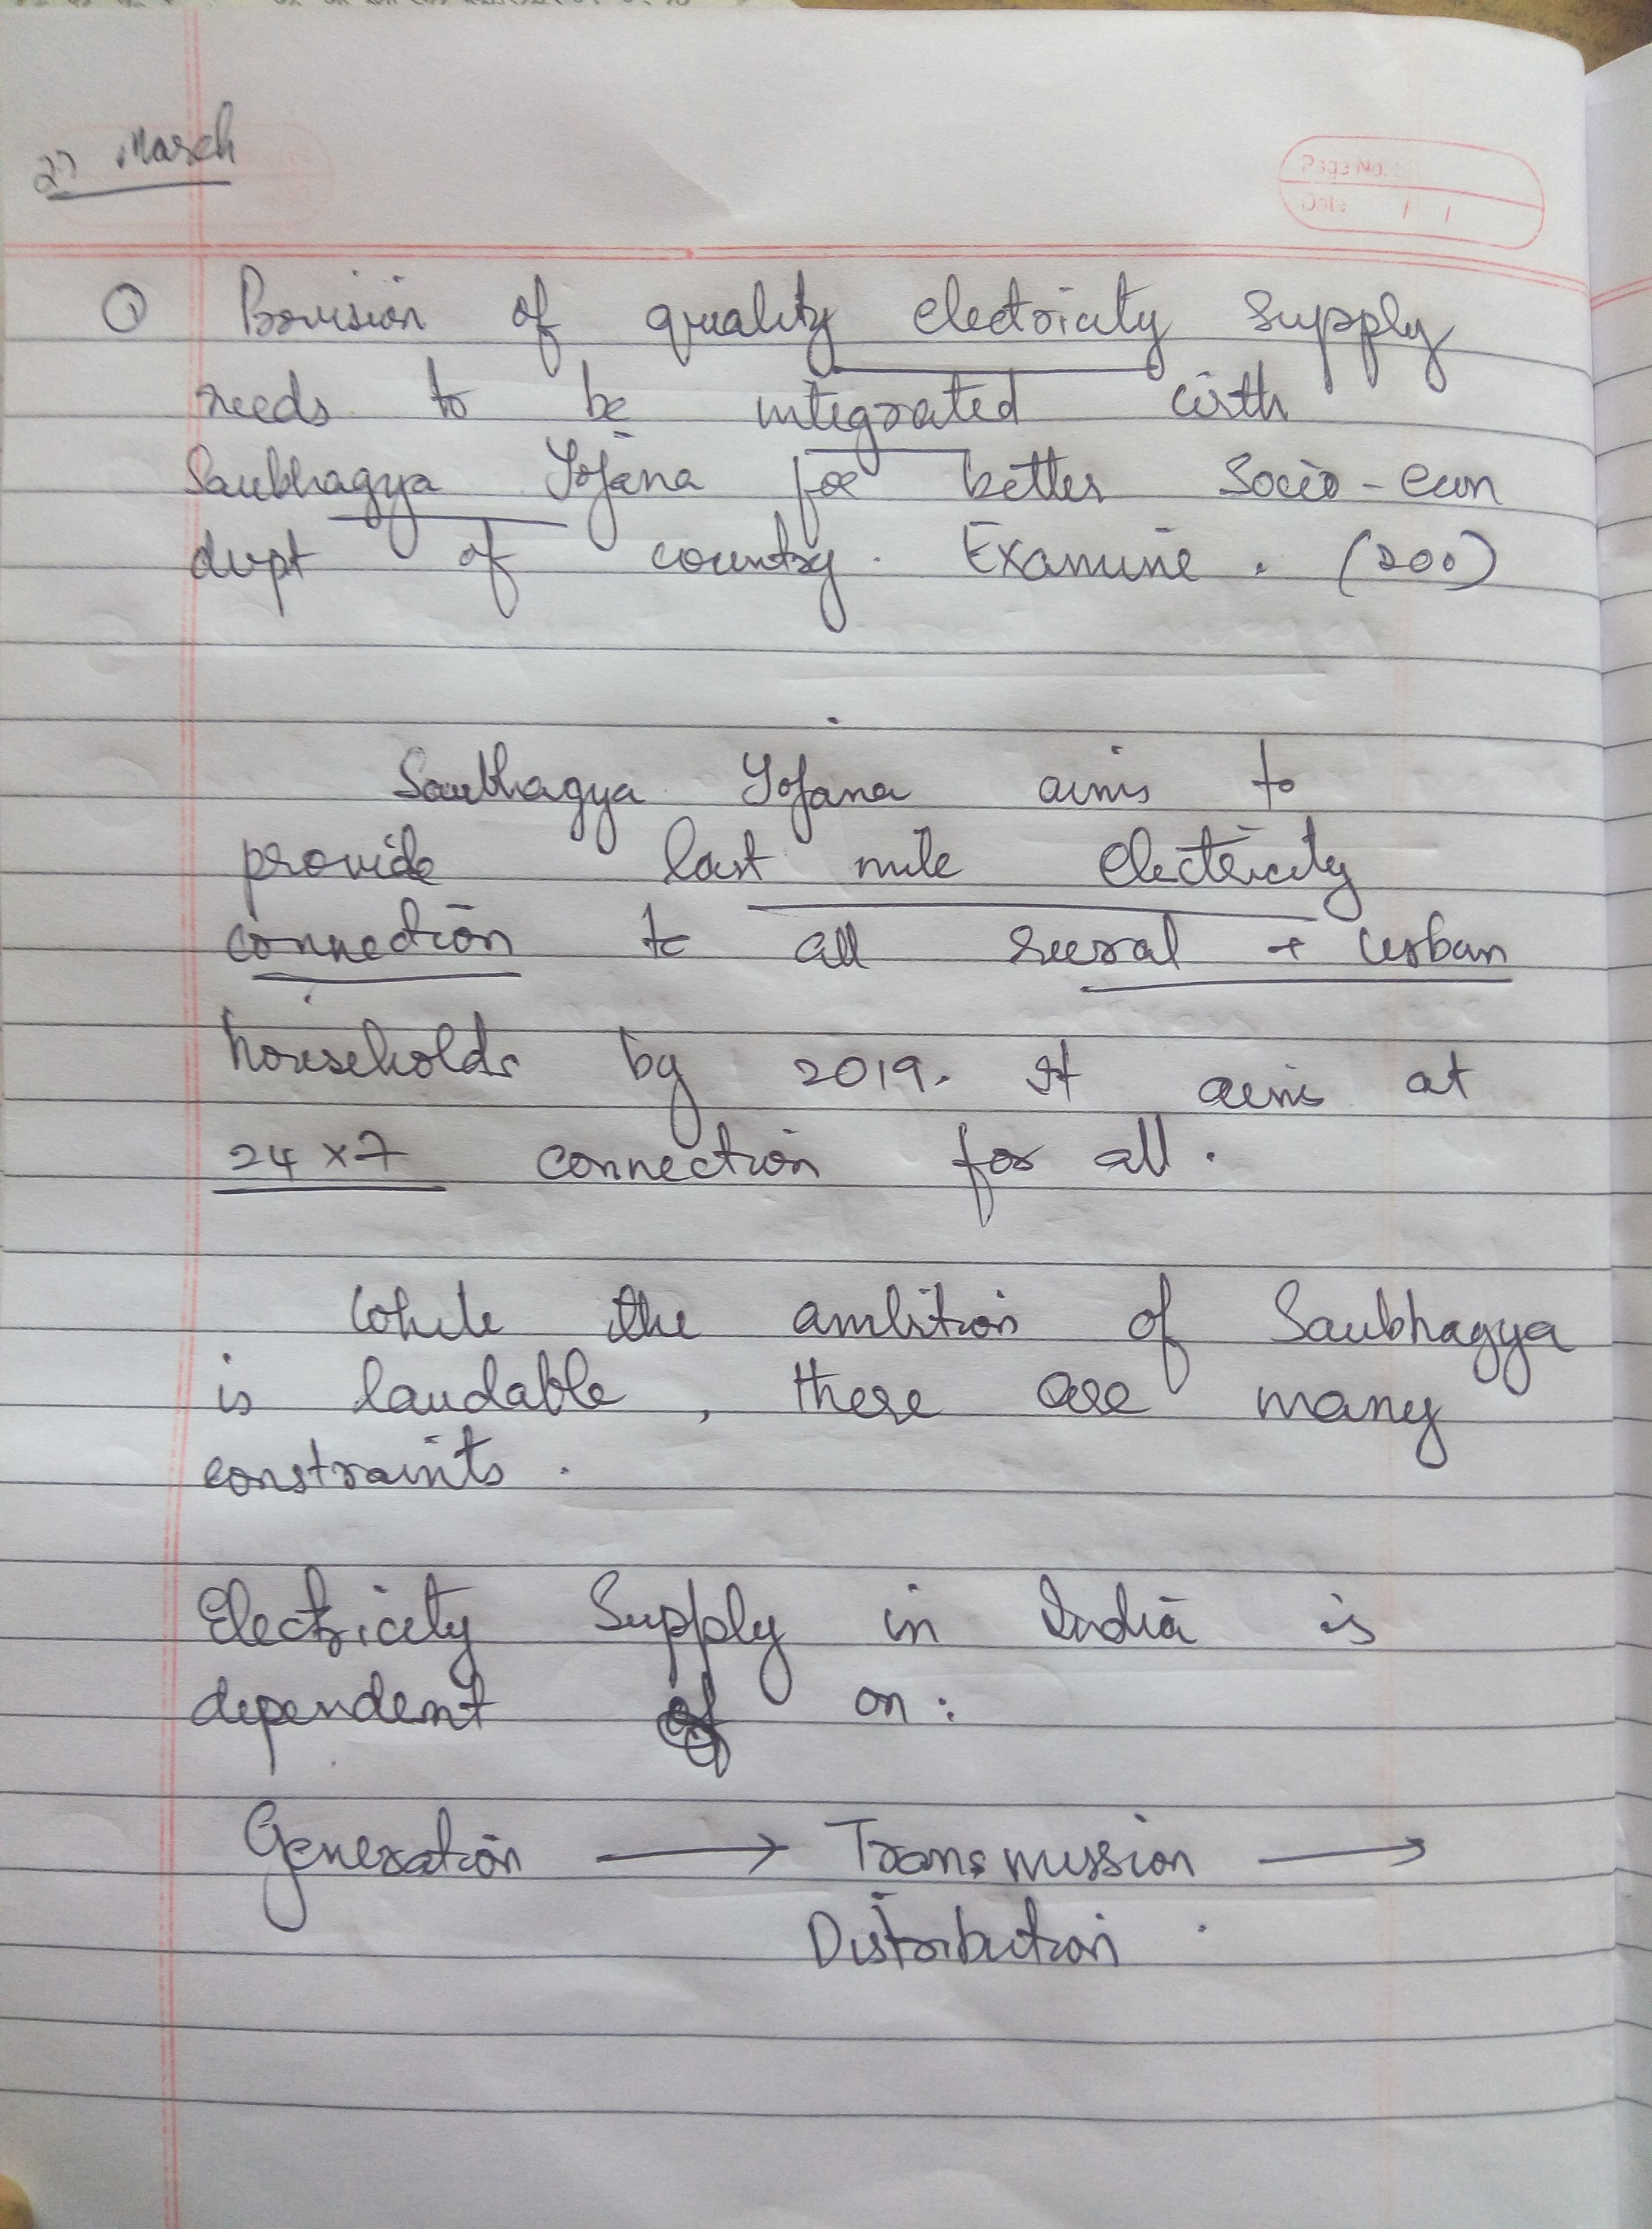 27 March
Page No.:
Date / /
Q Provision of quality electricity supply
needs to be integrated with
Saubhagya Yojana for better Socio-econ
dvpt of country. Examine. (200)
Saubhagya Yojana aims to
provide last mile electricity
connection to all rural + urban
households by 2019. It aims at
24x7 connection for all.
While the ambition of Saubhagya
is laudable, there are many
constraints.
Electricity Supply in India is
dependent on:
Generation → Transmission →
Distribution.